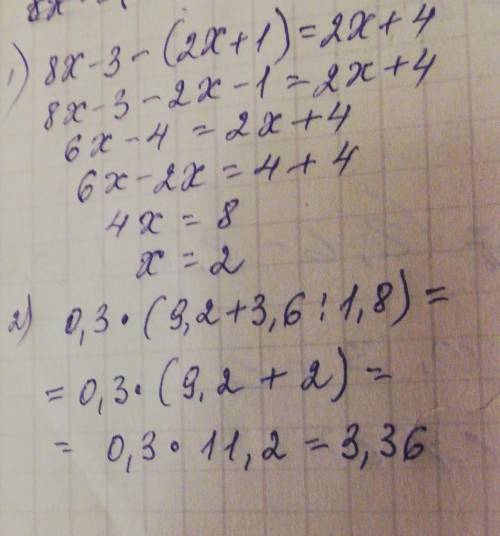 1) 8x-3-(2x+1)=2x+4
8x-3-2x-1=2x+4
6x-4=2x+4
6x-2x=4+4
4x=8
x=2
2) 0,3·(9,2+3,6:1,8)=
=0,3·(9,2+2)=
=0,3·11,2=3,36